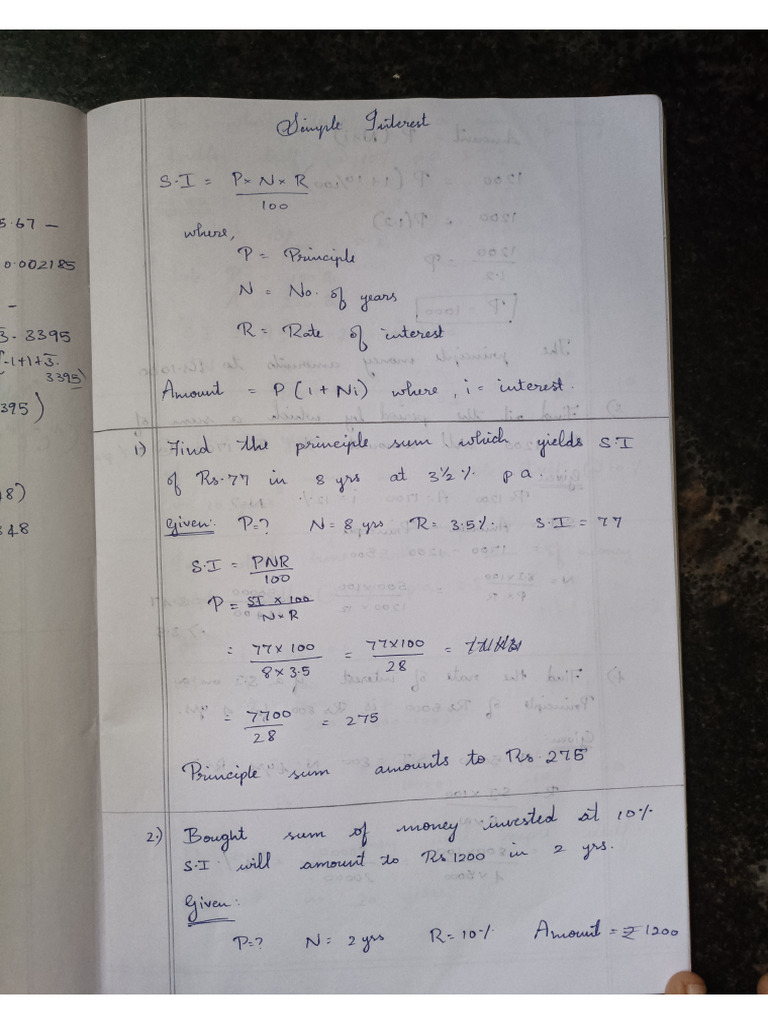 5.67 -
0.002185
-
3.3395
-1+1+3.
3395)
395)
8)
348
Simple Interest
S.I = P × N × R
100
where,
P = Principle
N = No. of years
R = Rate of interest
Amount = P (1 + Ni) where, i = interest.
1) Find the principle sum which yields S.I
of Rs.77 in 8 yrs at 3½ % p a.
Given: P=? N = 8 yrs R = 3.5% S.I = 77
S.I = PNR
100
P = SI × 100
N×R
= 77 × 100 = 77×100 =
8 × 3.5 28
= 7700 = 275
28
Principle sum amounts to Rs.275
2.) Bought sum of money invested at 10%
S.I will amount to Rs 1200 in 2 yrs.
Given:
P=? N = 2 yrs R = 10% Amount = ₹ 1200